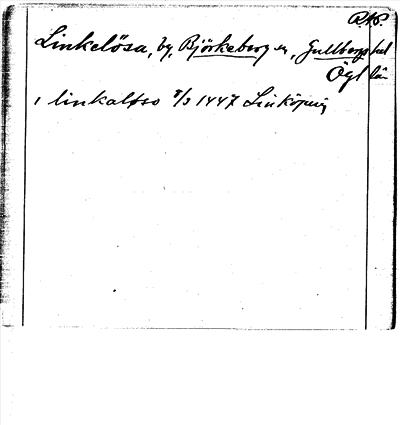 RAP.
Linkelösa, by, Björkeberg sn, Gullbergs hd
Ögl län
i linkaløso 8/3 1447 Linköping